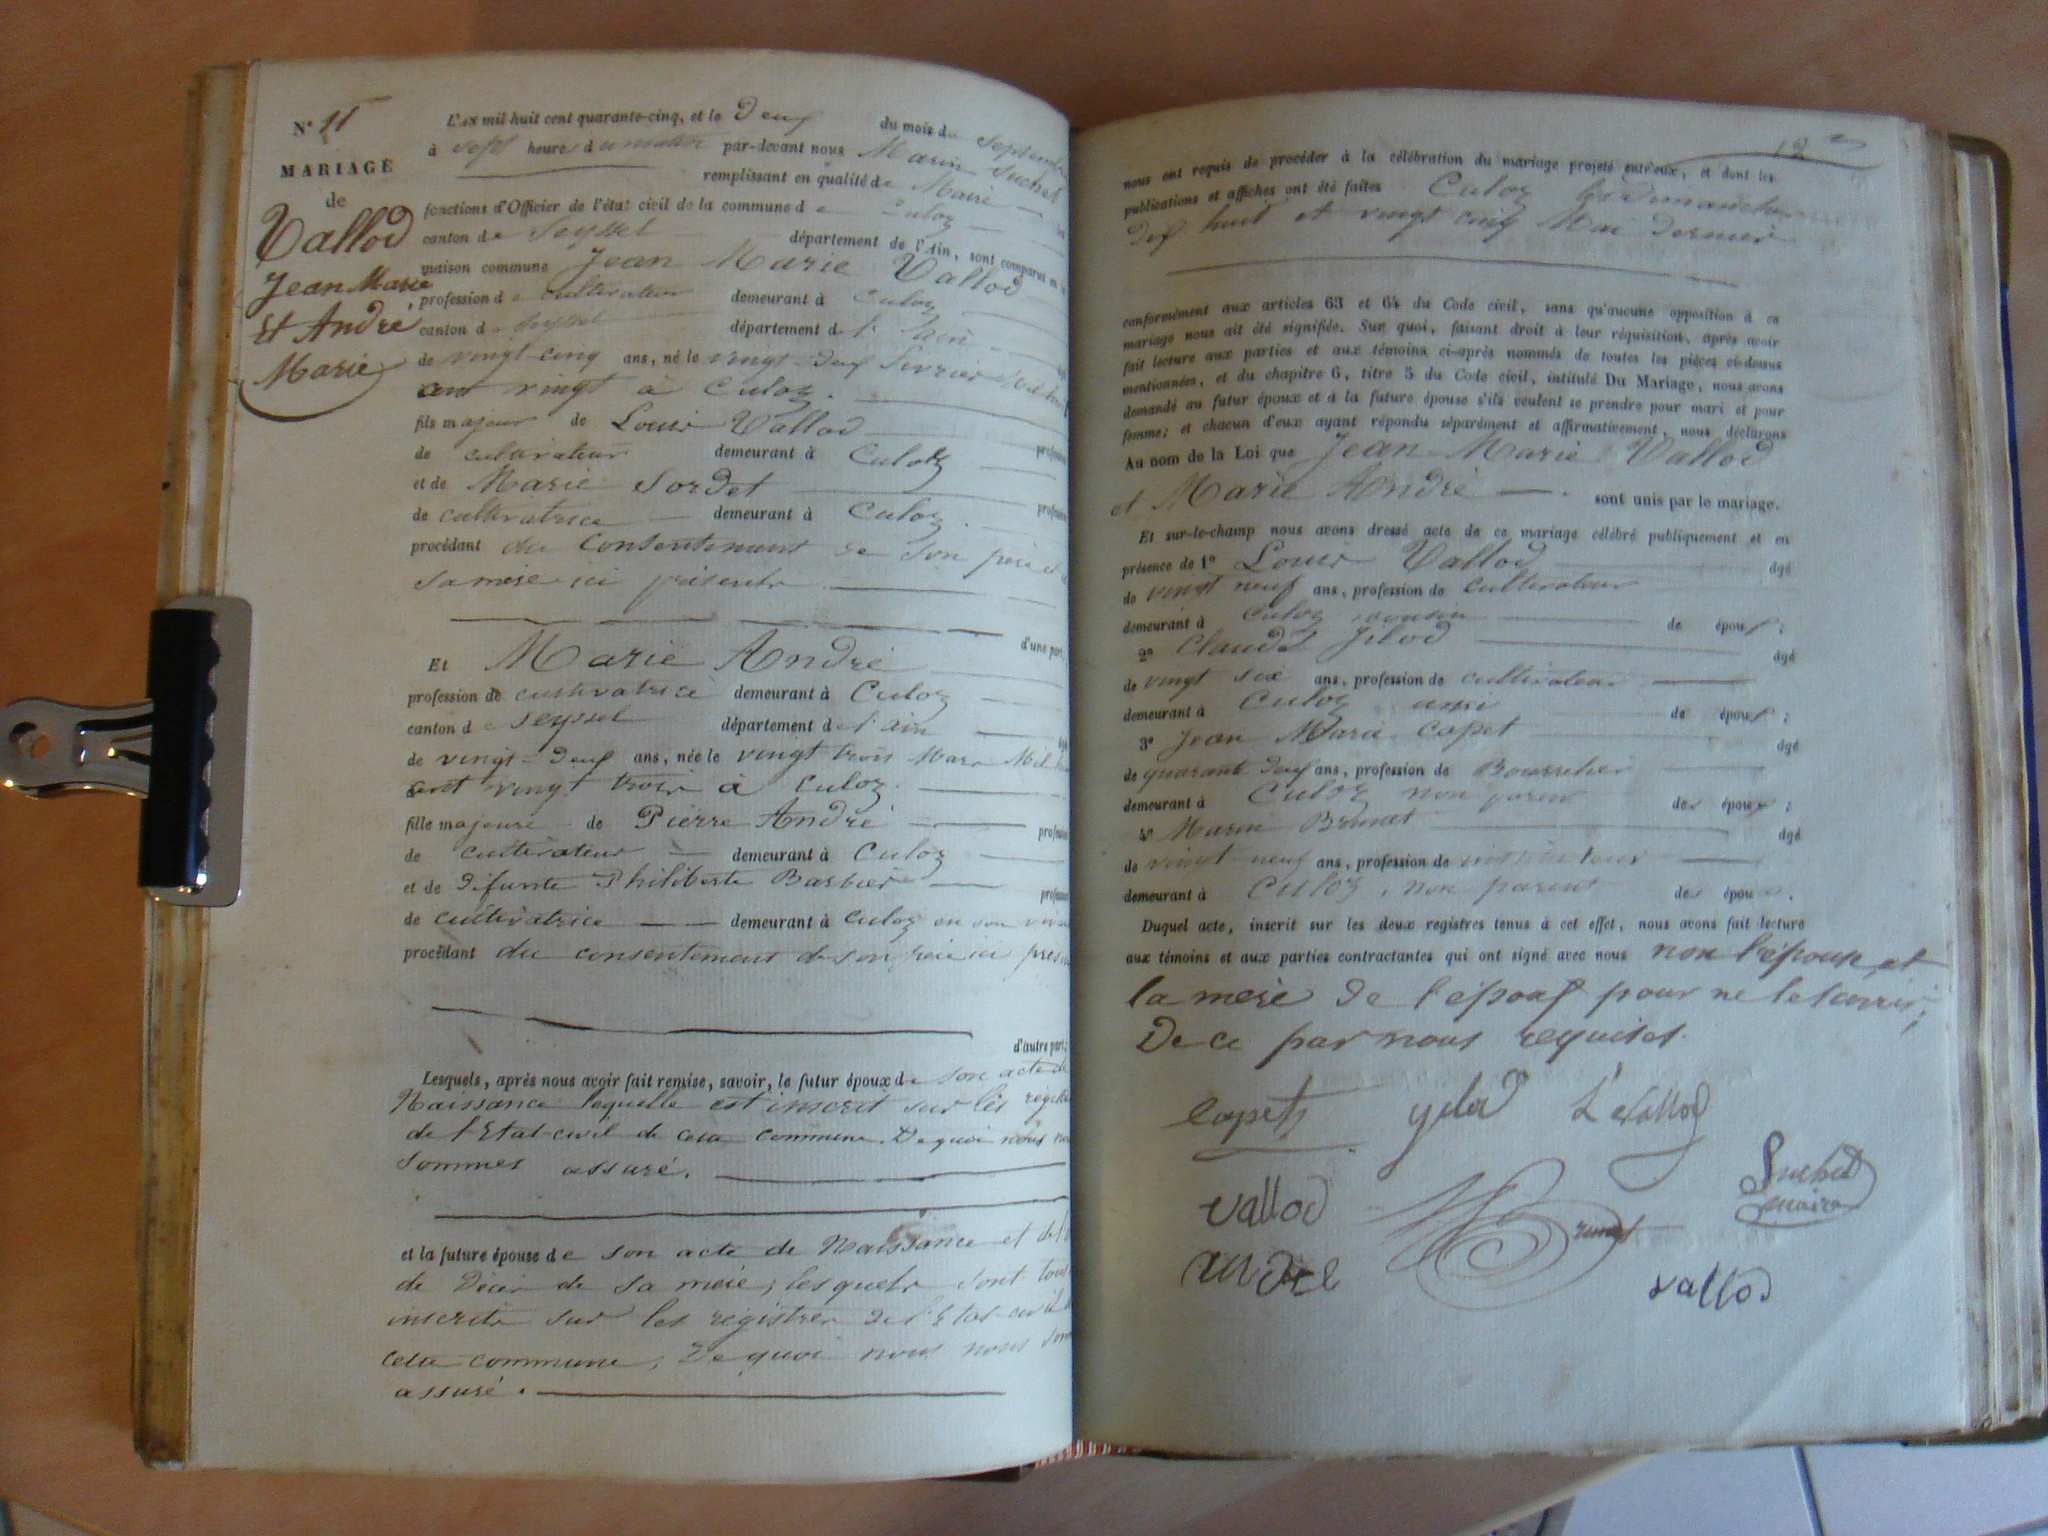 N° 11
MARIAGE
de
Vallod
Jean Marie
Et André
Marie
L'AN mil huit cent quarante-cinq, et le Deux du mois de Septembre
à sept heures du matin par-devant nous Marin Suchet
remplissant en qualité de Maire
fonctions d'Officier de l'état civil de la commune de Culoz
canton de Seyssel département de l'Ain, sont comparus en la
maison commune Jean Marie Vallod
profession de cultivateur demeurant à Culoz
canton de Seyssel département de l'Ain
de vingt-cinq ans, né le vingt-deux Février Mil huit
cent vingt à Culoz.
fils majeur de Louis Vallod profession
de cultivateur demeurant à Culoz
et de Marie Sordet profession
de cultivatrice demeurant à Culoz.
procédant du consentement de son père et de
sa mère ici présents
d'une part;
Et Marie André
profession de cultivatrice demeurant à Culoz
canton de Seyssel département de l'ain
de vingt-deux ans, née le vingt trois Mars Mil huit
cent vingt trois à Culoz.
fille majeure de Pierre André profession
de cultivateur demeurant à Culoz
et de défunte Philiberte Barbier profession
de cultivatrice demeurant à Culoz en son vivant
procédant du consentement de son père ici présent
d'autre part;
Lesquels, après nous avoir fait remise, savoir, le futur époux de son acte de
Naissance lequelle est inscrit sur les registres
de l'Etat-civil de cette commune. De quoi nous nous
sommes assuré.
et la future épouse de son acte de Naissance et de
de Décès de sa mère; lesquels sont tous
inscrits sur les registres de l'Etat-civil de
cette commune, De quoi nous nous sommes
assuré.
12
nous ont requis de procéder à la célébration du mariage projeté entr'eux, et dont les
publications et affiches ont été faites Culoz les dimanches
dix huit et vingt cinq Mai dernier
conformément aux articles 63 et 64 du Code civil, sans qu'aucune opposition à ce
mariage nous ait été signifiée. Sur quoi, faisant droit à leur réquisition, après avoir
fait lecture aux parties et aux témoins ci-après nommés de toutes les pièces ci-dessus
mentionnées, et du chapitre 6, titre 5 du Code civil, intitulé Du Mariage, nous avons
demandé au futur époux et à la future épouse s'ils veulent se prendre pour mari et pour
femme; et chacun d'eux ayant répondu séparément et affirmativement, nous déclarons
Au nom de la Loi que Jean Marie Vallod
et Marie André sont unis par le mariage.
Et sur-le-champ nous avons dressé acte de ce mariage célébré publiquement et en
présence de 1° Louis Vallod âgé
de vingt neuf ans, profession de cultivateur
demeurant à Culoz cousin de époux;
2° Claude Jilod âgé
de vingt six ans, profession de cultivateur
demeurant à Culoz ami de époux;
3° Jean Marie Capet âgé
de quarante deux ans, profession de Bourrelier
demeurant à Culoz non parent des époux;
4° Marin Brunet âgé
de vingt-neuf ans, profession de instituteur
demeurant à Culoz, non parent des époux.
Duquel acte, inscrit sur les deux registres tenus à cet effet, nous avons fait lecture
aux témoins et aux parties contractantes qui ont signé avec nous non l'épouse et
la mère de l'époux pour ne le savoir,
De ce par nous requises.
Capet Ld Vallod
Suchet
maire
Vallod
Brunet
André
Vallod